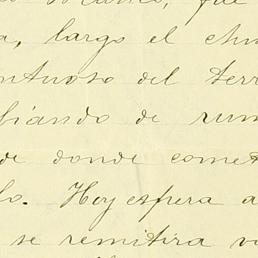 fue
a, largo el
ntuoso del terr
biando de rum
de donde comet
lo. Hoy espera a
se remitira va